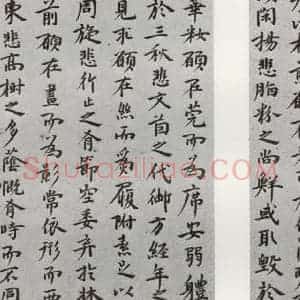 閑揚悲脂粉之尚鮮或取毀於
華粧願在莞而為席安弱體
於三秋悲文茵之代御方經年之
見求願在絲而為履附素足以
周旋悲行止之有節空委弃於牀
前願在晝而為影常依形而西
東悲高樹之多蔭慨有時而不同